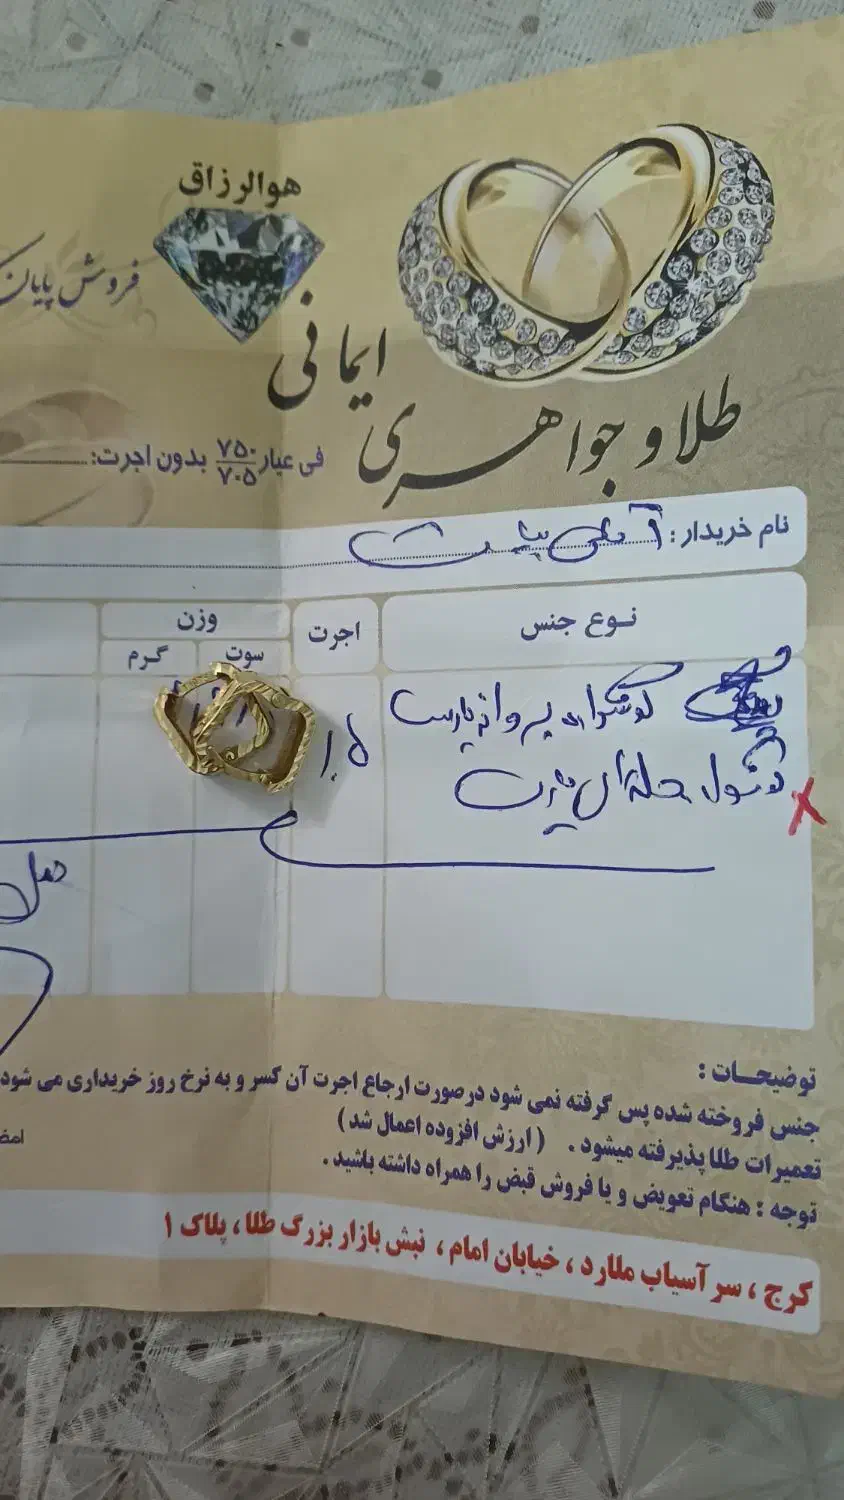 هوالرزاق
فروش پایان
طلا و جواهری ایمانی
فی عیار ۷۵۰/۷۰۵ بدون اجرت:
نام خریدار: آقای
نوع جنس
اجرت
وزن
سوت
گرم
گوشواره پروانه پارست
حلقه‌ای
توضیحات:
جنس فروخته شده پس گرفته نمی شود درصورت ارجاع اجرت آن کسر و به نرخ روز خریداری می شود
تعمیرات طلا پذیرفته میشود. (ارزش افزوده اعمال شد)
توجه: هنگام تعویض و یا فروش قبض را همراه داشته باشید.
کرج، سر آسیاب ملارد، خیابان امام، نبش بازار بزرگ طلا، پلاک ۱